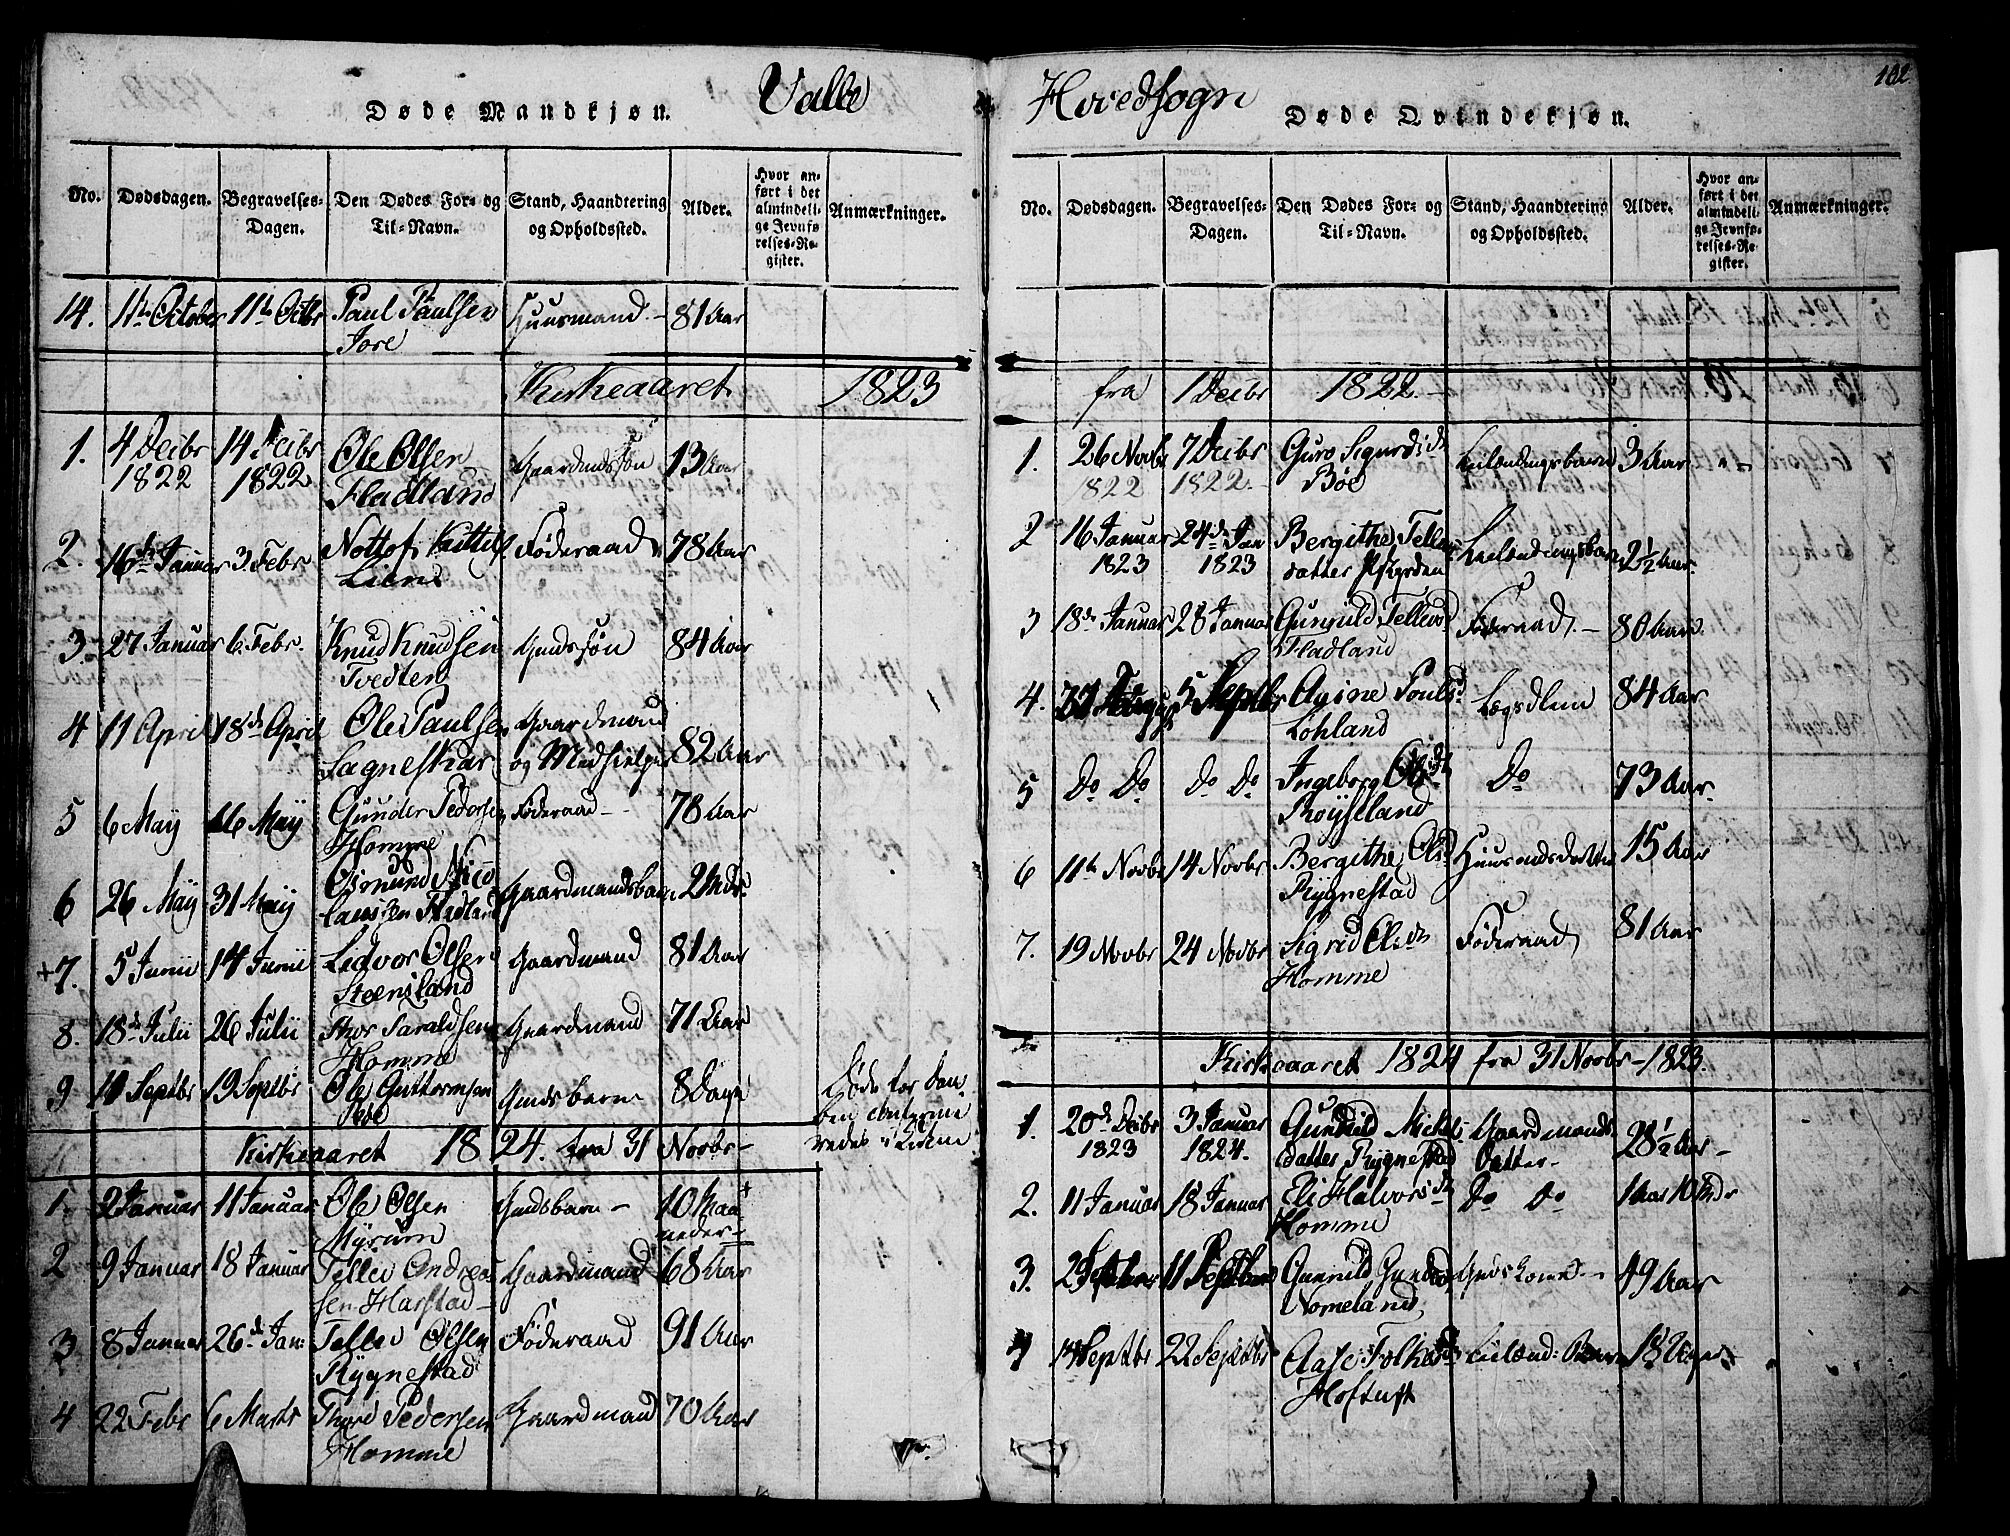 Valle
Hovedsogn
102
Døde Mandkjøn.
No. Dødsdagen. Begravelses-Dagen. Den Dødes For- og Til-Navn. Stand, Haandtering og Opholdssted. Alder. Hvor anført i det almindelige Jevnførelses-Register. Anmærkninger.
14. 11te October 11te Octbr Paul Paulsen Huusmand 81 Aar
Jore
Kirkeaaret 1823
1. 4 Decbr 14 Decbr Ole Olsen Gaardmdssøn 13 Aar
1822 1822 Fladland
2. 16de Januar 3 Febr Nottof Kittels Føderaad 78 Aar
Liene
3. 27 Januar 6 Febr. Knud Knudsen Gmdssøn 84 Aar
Tvedten
4 11 April 18de April Ole Paulsen Gaardmand
Lagneskar og Medhielper 82 Aar
5 6 May 16 May Gunder Pedersen Føderaad 78 Aar
Homme
6 26 May 31 May Osmund Nico Gaardmandsbarn 2 Mdr.
laussen Fladland
+7. 5 Junii 14 Junii Ledvor Olsen Gaardmand 81 Aar
Steensland
8. 18de Julii 26 Julii Thor Taraldsen Gaardmand 71 Aar
Homme
9 10 Septbr 19 Septbr Ole Guttormsen Gmdsbarn 8 Dage
Jore
Kirkeaaret 1824. fra 31 Novbr
1. 2 Januar 11 Januar Ole Olsen Gmdsbarn 10 Maa
Myrum neder
2 9 Januar 18 Januar Tellev Andrea Gaardmand 68 Aar
sen Harstad
3 8 Januar 26de Jan: Tellev Olsen Føderaad 91 Aar
Rygnestad
4 22 Febr 6 Marts Thore Pedersen Gaardmand 70 Aar
Homme
Døde Qvindekjøn.
No. Dødsdagen. Begravelses-Dagen. Den Dødes For- og Til-Navn. Stand, Haandtering og Opholdssted. Alder. Hvor anført i det almindelige Jevnførelses-Register. Anmærkninger.
fra 1 Decbr 1822.
1. 26 Novbr 7 Decbr Guro Sigurdsdt Leilendingsbarn 3 Aar
1822 1822. Bøe
2 16 Januar 24de Jan Bergithe Tellevs Leilendingsbarn 2½ Aar.
1823 1823 datter
3 18de Januar 28 Januar Gunvild Tellevsd Føderaad 80 Aar.
Fladland
4. 5 Septbr Avine Poulsd Lægdslem 84 Aar
Løhland
5 Do Do Do Do Ingeborg Olsdt Do 73 Aar.
Røysland
6 11te Novbr 14 Novbr Bergithe Olsd Huusmdsdatter 15 Aar
Rygnestad
7. 19 Novbr 24 Novbr Sigrid Olsdt Føderaad 81 Aar
Homme
Kirkeaaret 1824 fra 31 Novbr 1823.
1. 20de Decbr 3 Januar Gunvild Mickels Gaardmands 28½ Aar
1823 1824. datter Rygnestad Datter
2. 11 Januar 18 Januar Eli Halvorsdt Do Do 1 Aar 10 Mdr
Homme
3. 11 Septbr Gunvild Gundersd Gmdskone 49 Aar
Nomeland
4 14 Septbr 22 Septbr Aase Folkesd Leilend: Barn 18 Uger
Hoftuft